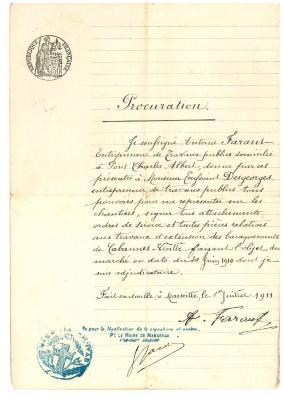 RÉPUBLIQUE FRANÇAISE
Procuration.
Je soussigné Antoine Faraut
Entrepreneur de Travaux publics domicilié
à Pont Charles Albert, donne par ces
présentes à Monsieur Toussaint Desgeorges
entrepreneur de travaux publics tous
pouvoirs pour me représenter sur les
chantiers, signer tous attachements
ordres de service et toutes pièces relatives
aux travaux d'extension des baraquements
de Cabannes-Vieilles, faisant l'objet du
marché en date du 30 Juin 1910 dont je
suis adjudicataire.
Fait en double à Marseille, le 1er Juillet 1911
A. Faraut
Vu pour la légalisation de la signature
Pr LE MAIRE DE MARSEILLE